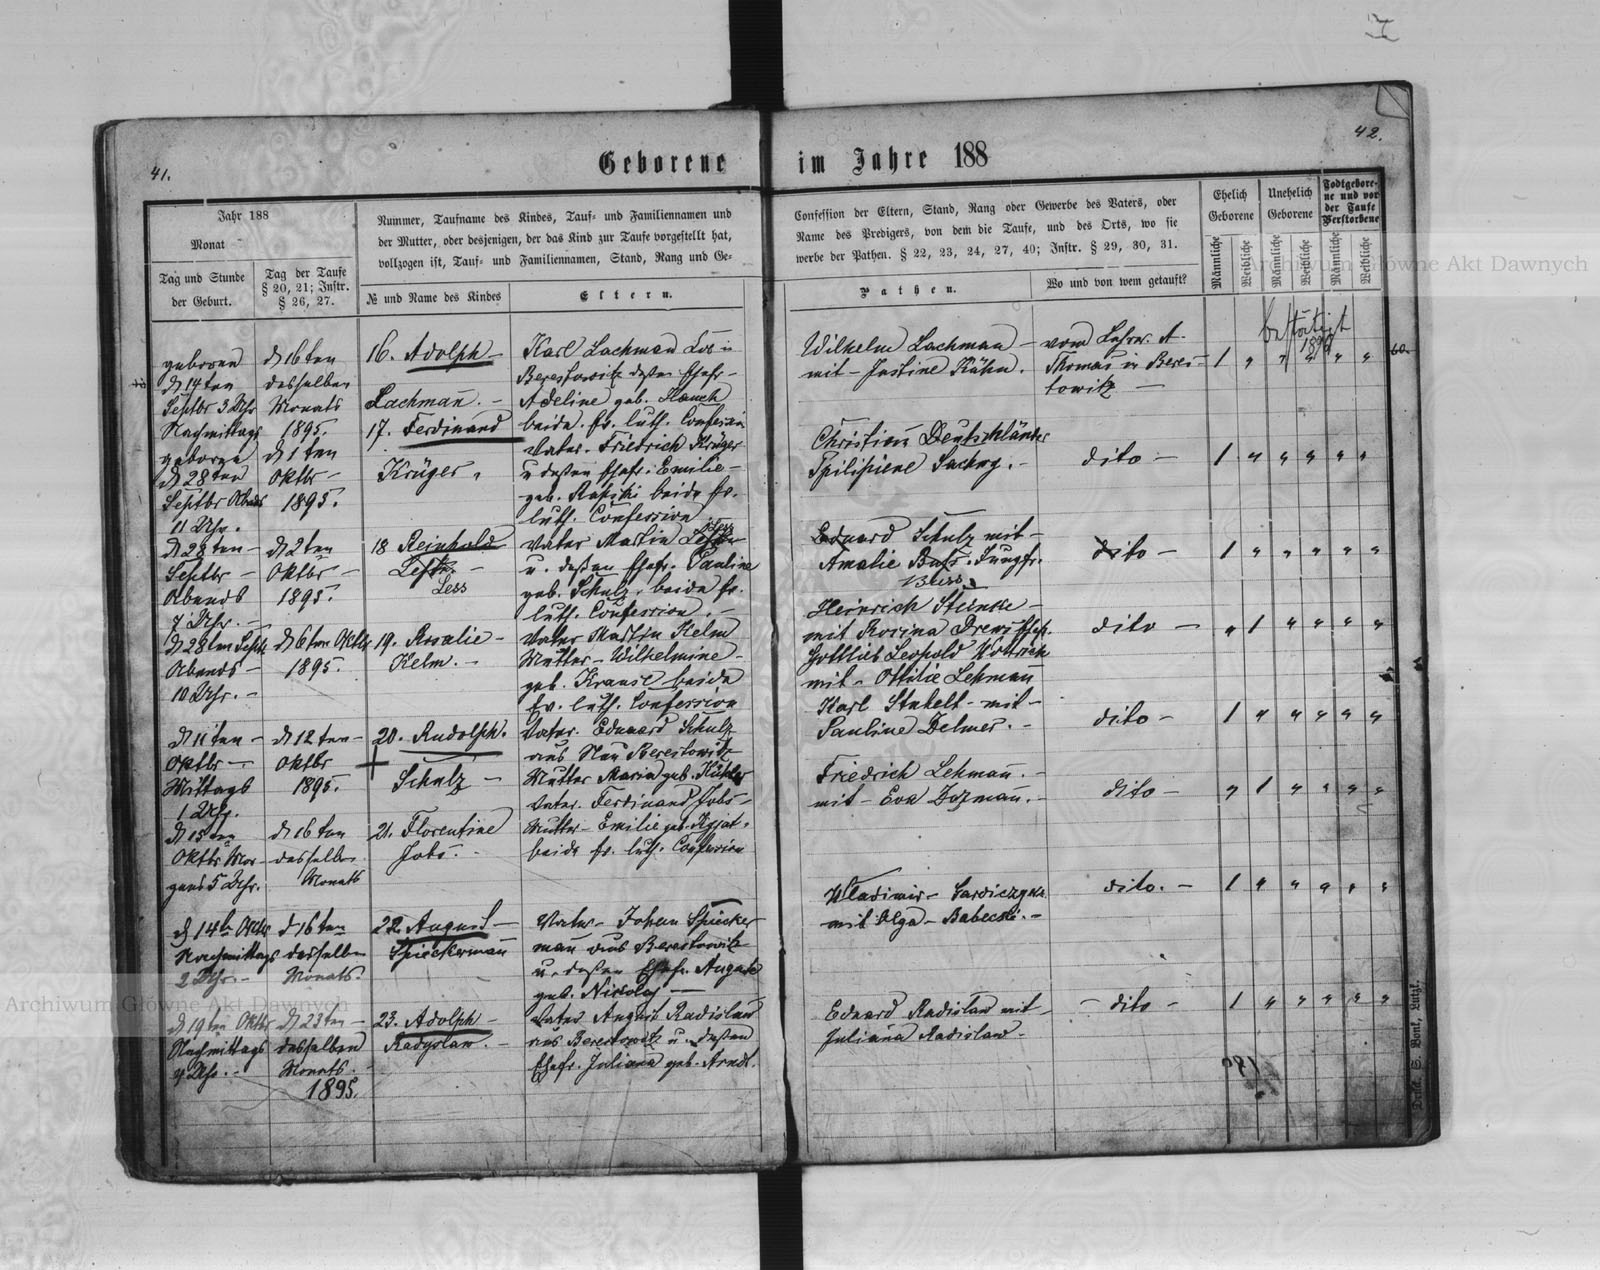 41.
42.
Geborene im Jahre 188
Jahr 188
Monat
Tag und Stunde
der Geburt.
Tag der Taufe
§ 20, 21; Instr.
§ 26, 27.
Nummer, Taufname des Kindes, Tauf- und Familiennamen und
der Mutter, oder desjenigen, der das Kind zur Taufe vorgestellt hat,
vollzogen ist, Tauf- und Familiennamen, Stand, Rang und Ge-
№ und Name des Kindes
Eltern.
Confession der Eltern, Stand, Rang oder Gewerbe des Vaters, oder
Name des Predigers, von dem die Taufe, und des Orts, wo sie
werbe der Pathen. § 22, 23, 24, 27, 40; Instr. § 29, 30, 31.
Pathen.
Wo und von wem getauft?
Ehelich
Geborene
Unehelich
Geborene
Todtgebore-
ne und vor
der Taufe
Verstorbene
Männliche
Weibliche
Männliche
Weibliche
Männliche
Weibliche
geboren
d 14ten
Septbr 3 Uhr
Nachmittags
d 16ten
desselben
Monats
1895.
16. Adolph –
Lachman. –
Karl Lachman
Berestowitz deßen Ehefr –
Adeline geb. Hauch
beide. Ev. luth. Confession
Wilhelm Lachman –
mit – Justine Kühn.
vom Lehrer A.
Thomas in Beres-
towitz –
1 " " " " "
bestätigt
geboren
d 28ten
Septbr Abends
11 Uhr.
d 1ten
Oktbr –
1895.
17. Ferdinand
Krüger "
Vater. Friedrich Krüger
u deßen Ehefr. Emilie –
geb. Rafiski beide Ev.
luth. Confession
Christian Deutschländer
dito –
1 " " " " "
d 28ten –
Septbr –
Abends
7 Uhr. –
d 2ten
Oktbr –
1895.
18 Reinhold
Less
Vater Martin Less
u. deßen Ehefr. Pauline
geb. Schulz. beide Ev.
luth. Confession. –
Eduard Schulz mit –
Amalie Buss. Jungfr.
Buss
dito –
1 " " " " "
d 28ten Septbr
Abends –
10 Uhr. –
d 6ten Oktbr
1895.
19. Rosalie –
Kelm. –
Vater Martin Kelm
Mutter – Wilhelmine –
geb. Krause beide
Ev. luth. Confession
Heinrich Steinke –
mit Rosina Drews Ehefr.
Gottlieb Leopold
mit – Ottilie Lehman
dito –
" 1 " " " "
d 11ten –
Oktbr –
Mittags
1 Uhr.
d 12ten –
Oktbr
1895.
20. Rudolph.
Schulz –
Vater. Eduard Schulz
aus Neu Berestowitz
Mutter Maria geb.
Karl Stubelt – mit –
Pauline Delmer. –
dito –
1 " " " " "
d 15ten
Oktbr Mor-
gens 5 Uhr.
d 16ten
desselben
Monats
21. Florentine
Jobs. –
Vater. Ferdinand Jobs –
Mutter – Emilie geb.
beide Ev. luth. Confession
Friedrich Lehman. –
mit – Eva
dito –
" 1 " " " "
d 14t Oktbr
Nachmittags
2 Uhr –
d 16ten
desselben
Monats.
22. August –
Spieckerman
Vater – Johan Spiecker
man aus Berestowitz
u. deßen Ehefr. Auguste
geb. Nickolay –
Wladimir –
mit Olga – Babecki. –
dito. –
1 " " " " "
d 19ten Oktbr
Nachmittags
4 Uhr. –
d 23ten –
desselben
Monats.
1895.
23. Adolph –
Radyslaw. –
Vater August Radislaw
aus Berestowitz u. deßen
Ehefr. Juliana geb. Arndt.
Eduard Radislaw mit –
Juliana Radislaw.
– dito –
1 " " " " "
Druck S. Bonk, Lutzk.
Archiwum Główne Akt Dawnych
Archiwum Główne Akt Dawnych